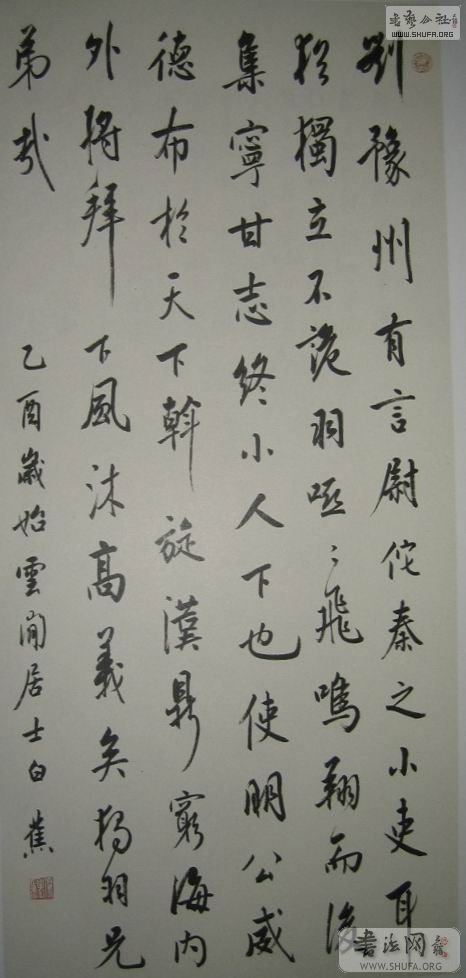 劉豫州有言尉佗秦之小吏耳
猶獨立不詭羽嘔〻飛鳴翔而後
集寧甘志終小人下也使明公威
德布於天下斡旋漢鼎窮海内
外將拜下風沐高義矣獨羽兄
弟哉
乙酉歲始雲間居士白蕉
書藝公社
WWW.SHUFA.ORG
書法网
WWW.SHUFA.ORG